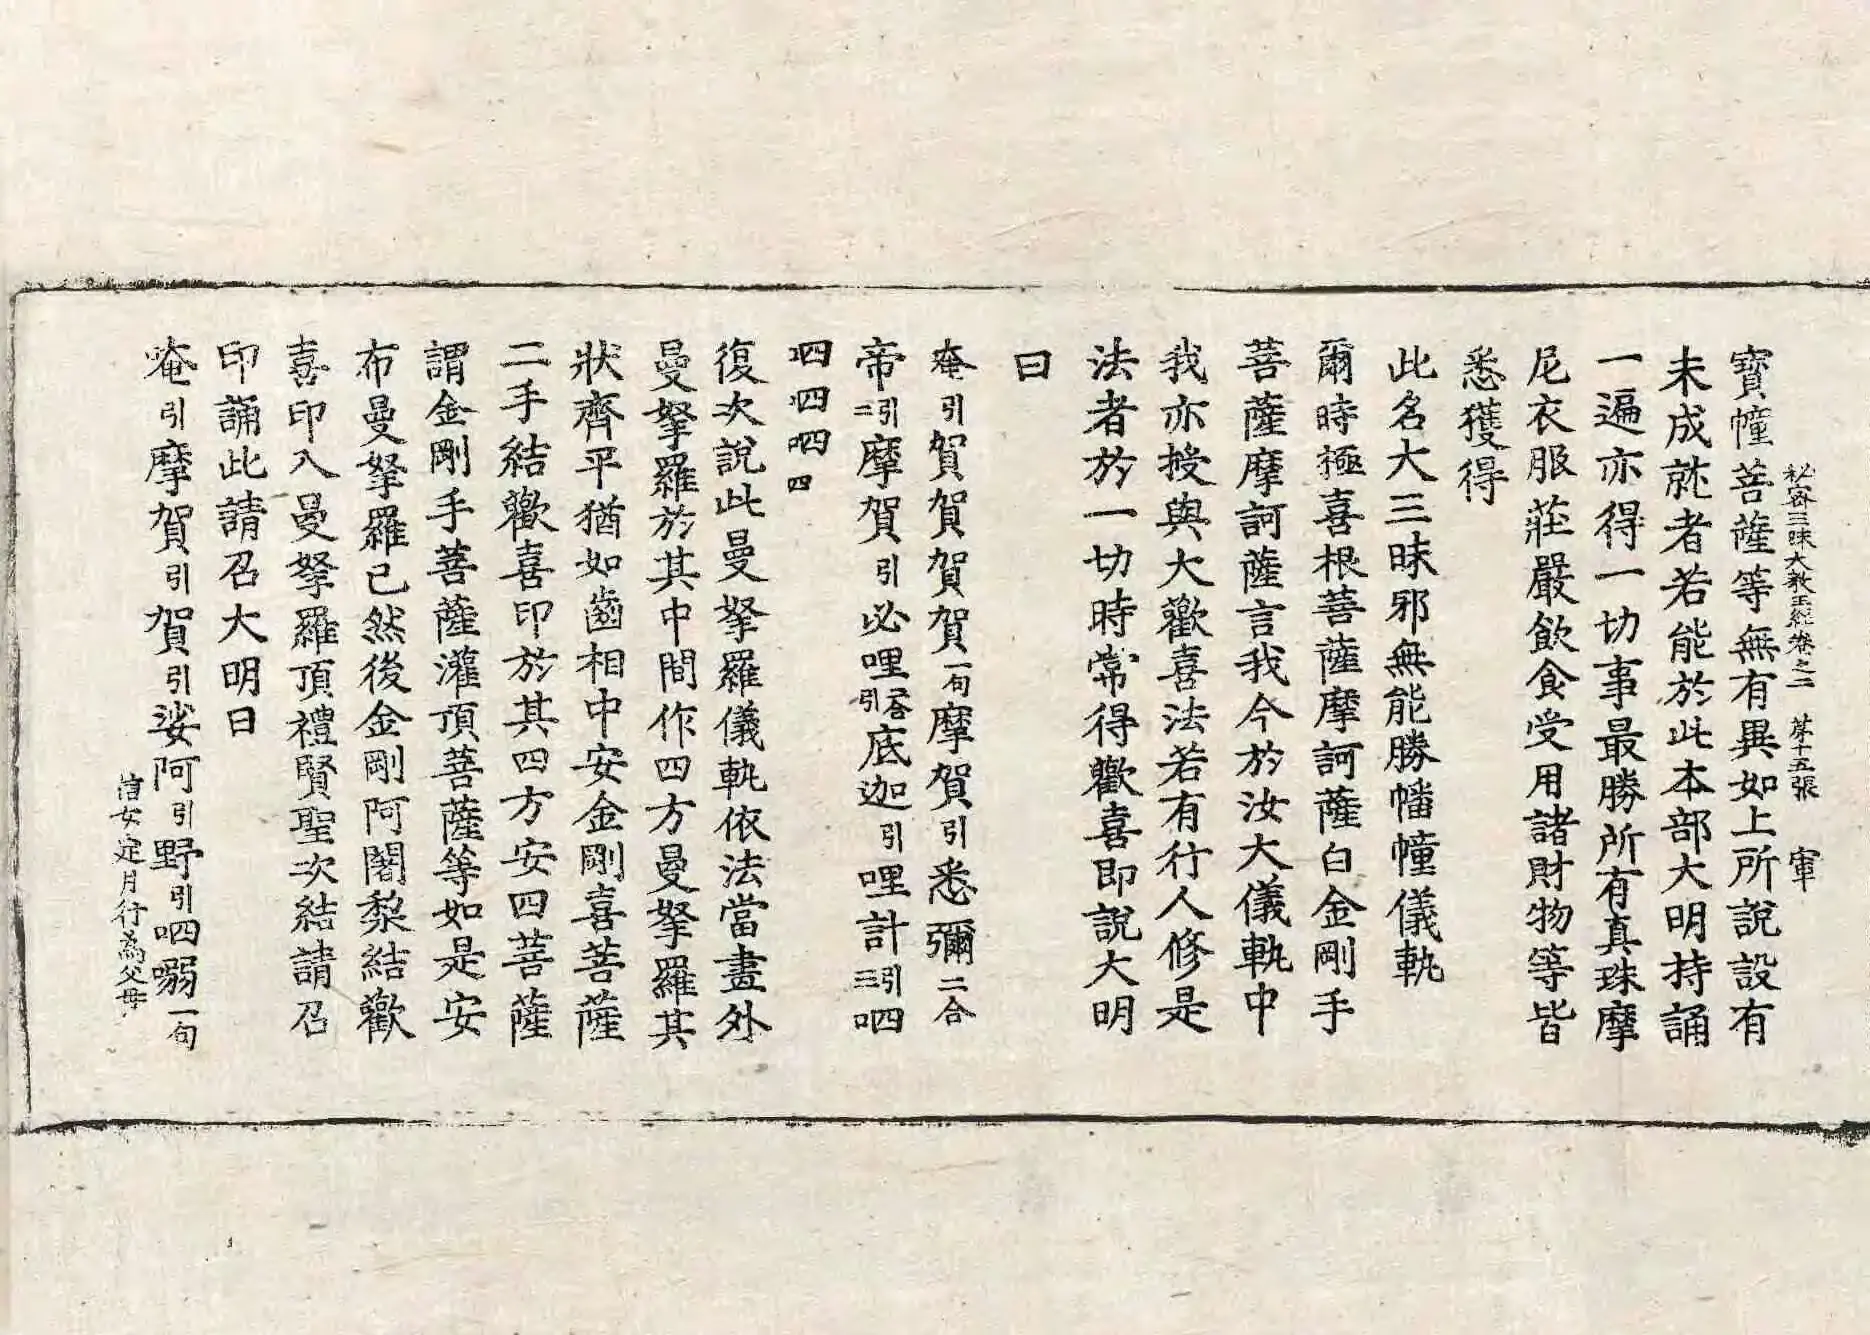 秘密三昧大教王經卷之二 第十五張 軍
寶幢菩薩等無有異如上所說設有
未成就者若能於此本部大明持誦
一遍亦得一切事最勝所有真珠摩
尼衣服莊嚴飲食受用諸財物等皆
悉獲得
此名大三昧邪無能勝幡幢儀軌
爾時極喜根菩薩摩訶薩白金剛手
菩薩摩訶薩言我今於汝大儀軌中
我亦授與大歡喜法若有行人修是
法者於一切時常得歡喜即說大明
曰
唵引賀賀賀賀一句摩賀引悉彌二合
帝引二摩賀引必哩二合引底迦引哩計引三呬
呬呬呬四
復次說此曼拏羅儀軌依法當畫外
曼拏羅於其中間作四方曼拏羅其
狀齊平猶如齒相中安金剛喜菩薩
二手結歡喜印於其四方安四菩薩
謂金剛手菩薩灌頂菩薩等如是安
布曼拏羅已然後金剛阿闍黎結歡
喜印入曼拏羅頂禮賢聖次結請召
印誦此請召大明曰
唵引摩賀引賀引娑阿引野引呬嗍一句
信女定月行為父母